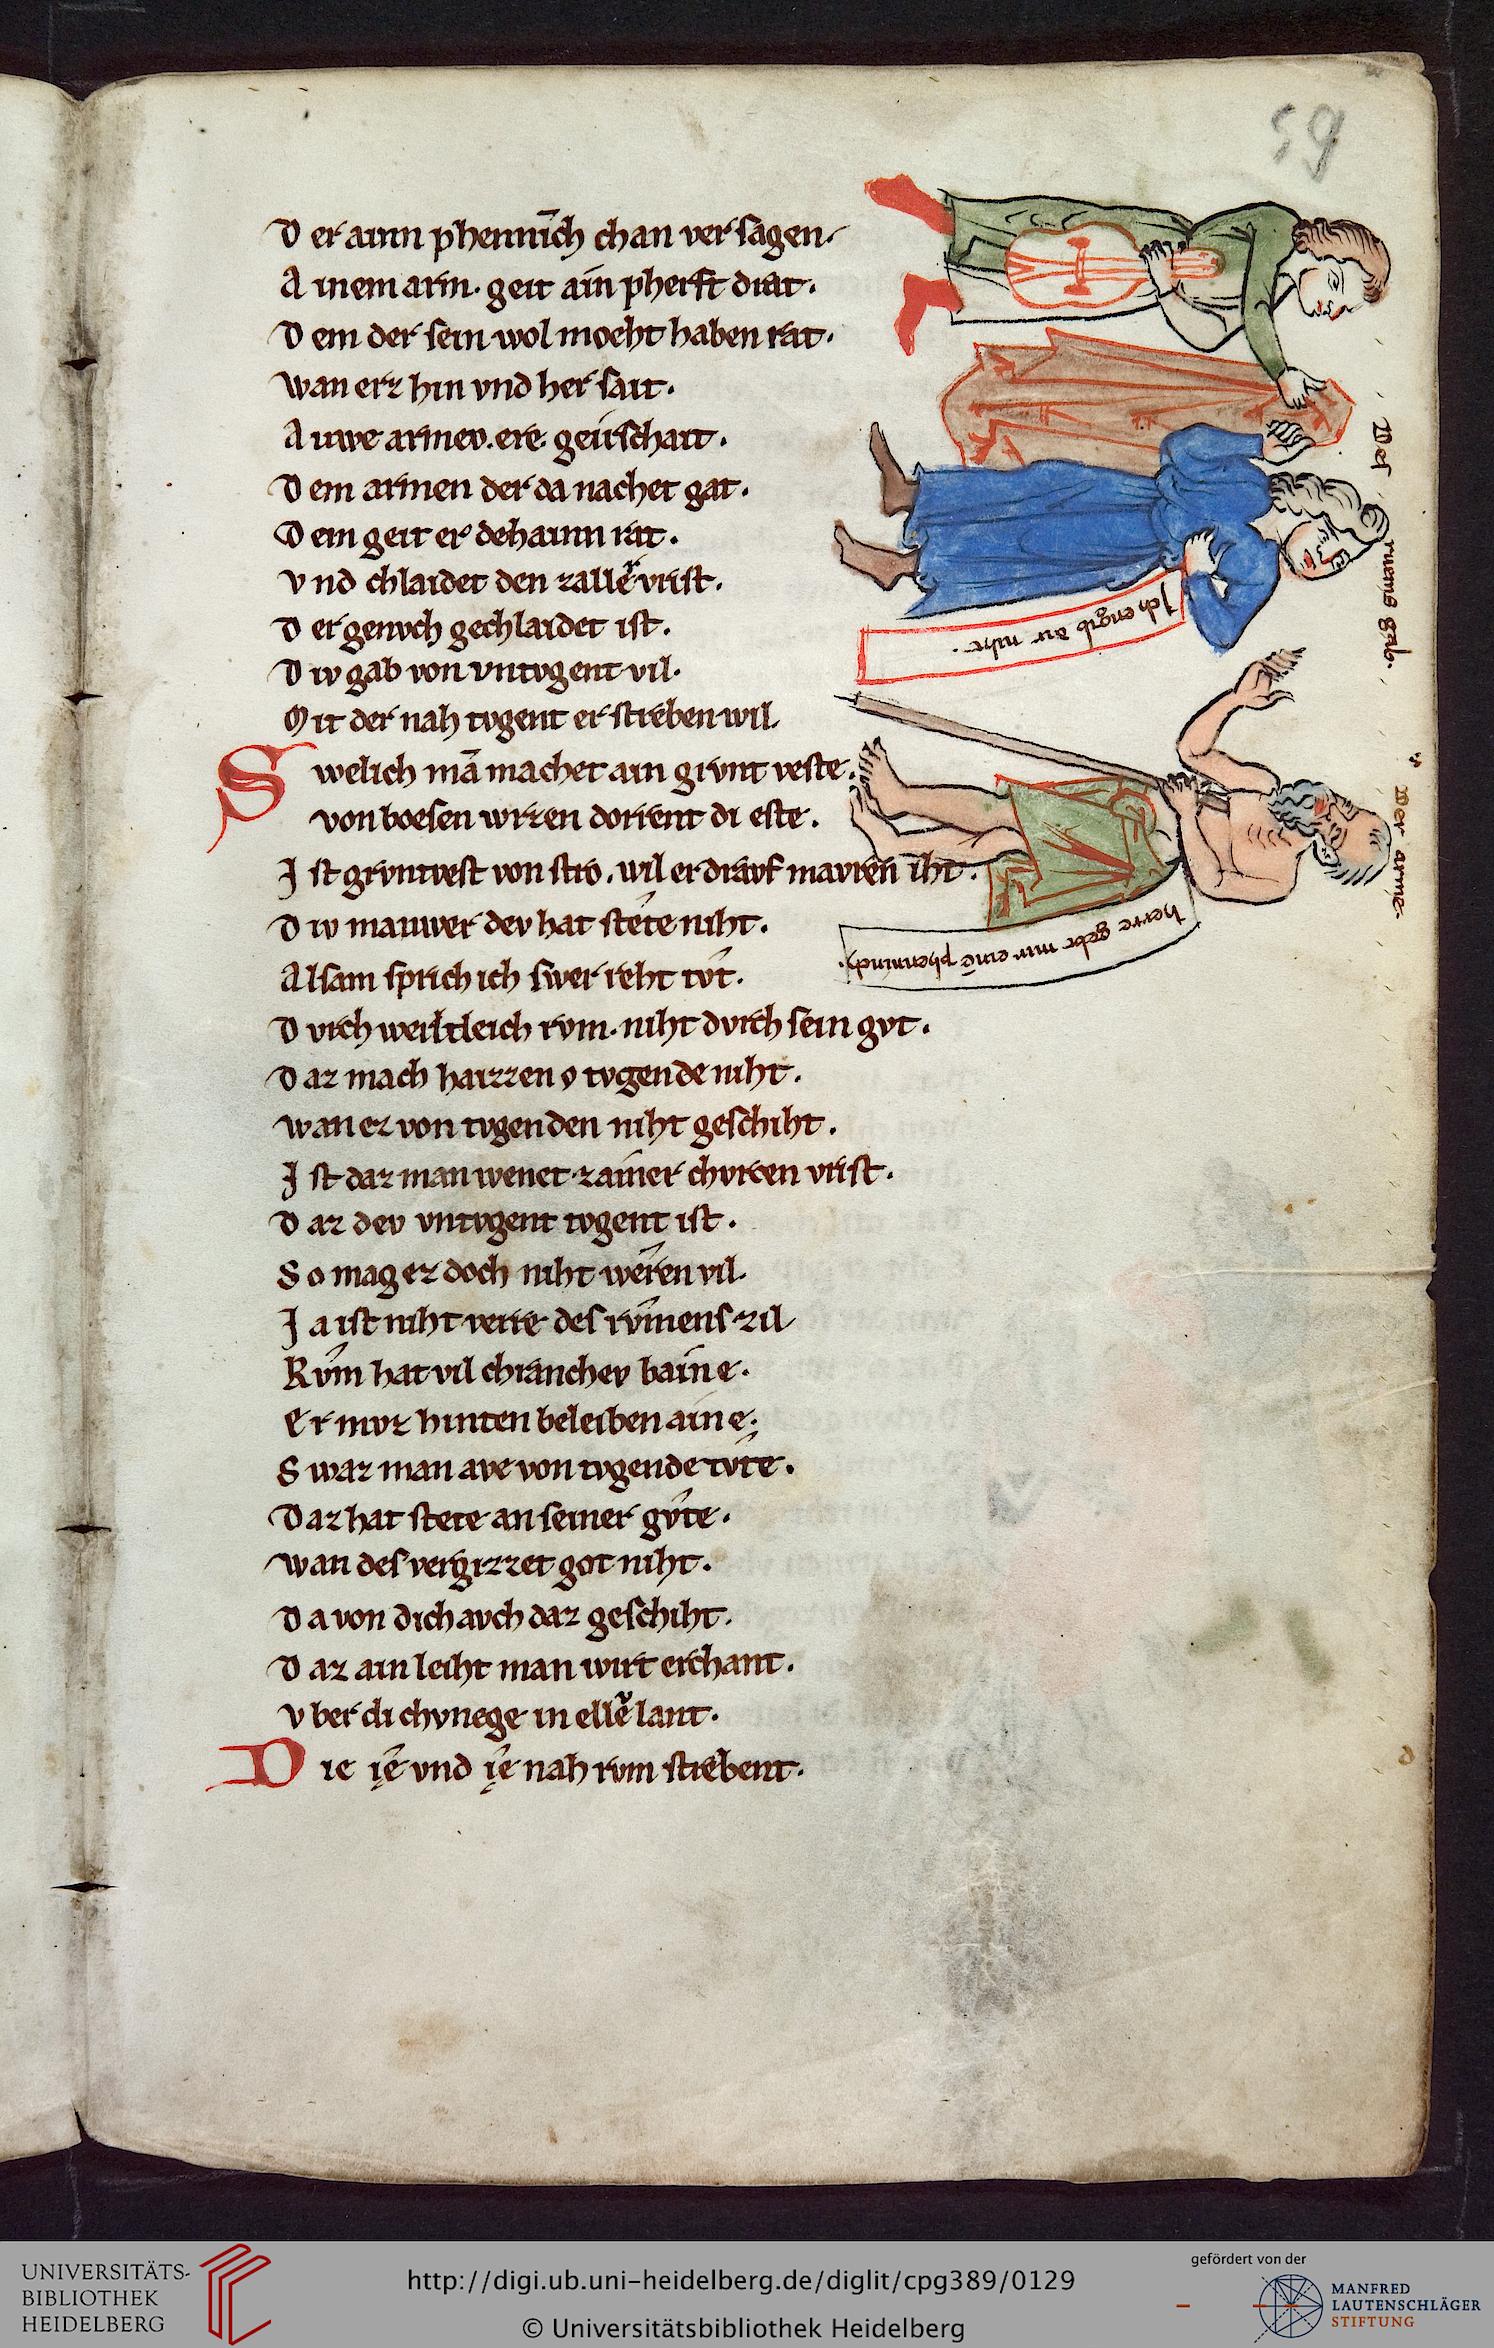 59
D er ainn phennīch chan ver sagen.
A inem arm. geit ain pherft drat.
D em der sein wol moeht haben rat.
wan erz hin vnd her sait.
A uwe armev. ere geitschait.
D em armen der da nachet gat.
D em geit er dehainn rat.
v nd chlaidet den zaller vrist.
D er genvch gechlaidet ist.
D iv gab von vntvgent vil.
M it der nah tvgent er streben wil.
S welich mā machet ain grvnt veste.
von boesen wrzen dorrent di este.
J st grvntvest von stro. wil er dravf mavren iht.
D iv mauwer dev hat stete niht.
A lsam sprich ich swer reht tvt.
D vrch werltleich rvm. niht dvrch sein gvt.
D az mach haizzen v tvgende niht.
wan ez von tvgenden niht geschiht.
J st daz man wenet. zainer chvrcen vrist.
D az dev vntvgent tvgent ist.
S o mag ez doch niht weren vil.
J a ist niht verre des rvmens zil
R vm hat vil chranchev baine.
E r mvz hinten beleiben aine.
S waz man ave von tvgende tvte.
D az hat stete an seiner gvte.
wan des vergizzet got niht.
D a von dich avch daz geschiht.
D az ain leiht man wirt erchant.
v ber di chvnege in eller lant.
D ie ie vnd ie nah rvm strebent.
Des ruems gab.
Jch engib dir niht.
Der arme.
herre gebt mir einē phenninch.
d
UNIVERSITÄTS-
BIBLIOTHEK
HEIDELBERG
http://digi.ub.uni-heidelberg.de/diglit/cpg389/0129
© Universitätsbibliothek Heidelberg
gefördert von der
MANFRED
LAUTENSCHLÄGER
STIFTUNG